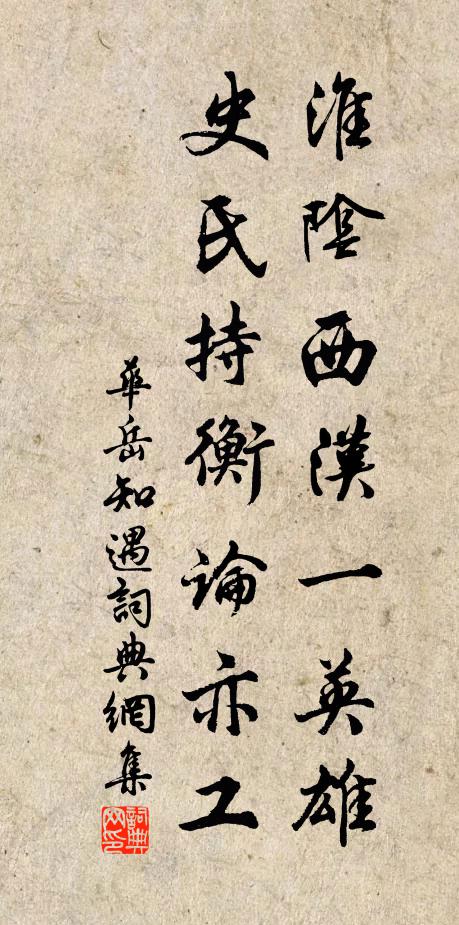 淮陰西漢一英雄
史氏持衡論亦工
華岳知遇詞典網集
詞典網印